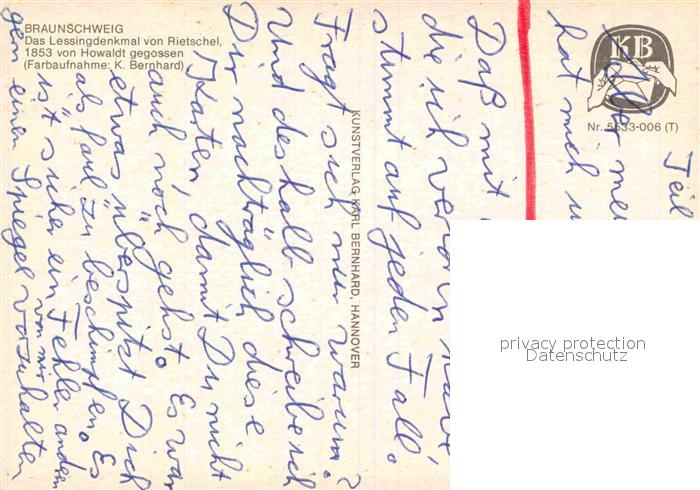 BRAUNSCHWEIG
Das Lessingdenkmal von Rietschel,
1853 von Howaldt gegossen
(Farbaufnahme: K. Bernhard)
KB
Nr. 5533-006 (T)
KUNSTVERLAG KARL BERNHARD, HANNOVER
privacy protection
Datenschutz
Teil
Aber mei
hat mich
Daß mit
die ich
stimmt auf jeden Fall.
Fragt sich nur warum?
Und deshalb schreibe ich
Dir nachträglich diese
Karten, damit Du nicht
auch noch gehst. Es war
etwas überspitzt Dich
als faul zu beschimpfen. Es
ist sicher ein Fehler von mir anderen
gern einen Spiegel vorzuhalten